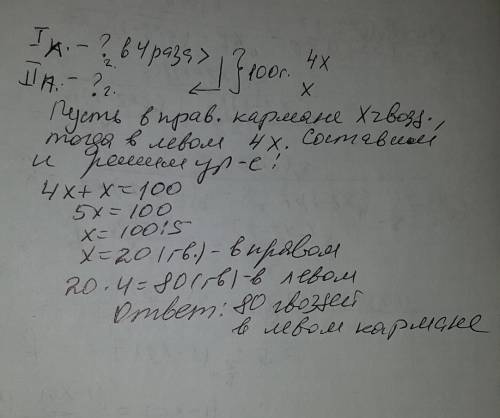 I к. - ? г. в 4 раза > } 100г. 4x
II к. - ? г. x
Пусть в прав. кармане x гвозд.,
тогда в левом 4x. Составим
и решим ур-е:
4x + x = 100
5x = 100
x = 100:5
x = 20 (гв.) - в правом
20 · 4 = 80 (гв) - в левом
Ответ: 80 гвоздей
в левом кармане